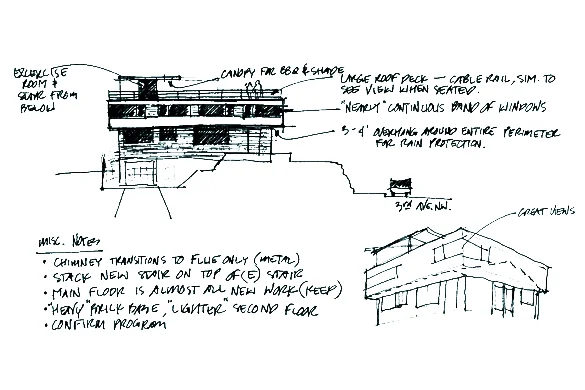 EXERCISE
ROOM &
STAIR FROM
BELOW
CANOPY FOR BBQ & SHADE
LARGE ROOF DECK — CABLE RAIL, SIM. TO
SEE VIEW WHEN SEATED.
"NEARLY" CONTINUOUS BAND OF WINDOWS
3-4' OVERHANG AROUND ENTIRE PERIMETER
FOR RAIN PROTECTION.
3RD AVE. NW.
GREAT VIEWS
MISC. NOTES
• CHIMNEY TRANSITIONS TO FLUE ONLY (METAL)
• STACK NEW STAIR ON TOP OF (E) STAIR
• MAIN FLOOR IS ALMOST ALL NEW WORK (KEEP)
• "HEAVY" BRICK BASE, "LIGHTER" SECOND FLOOR
• CONFIRM PROGRAM